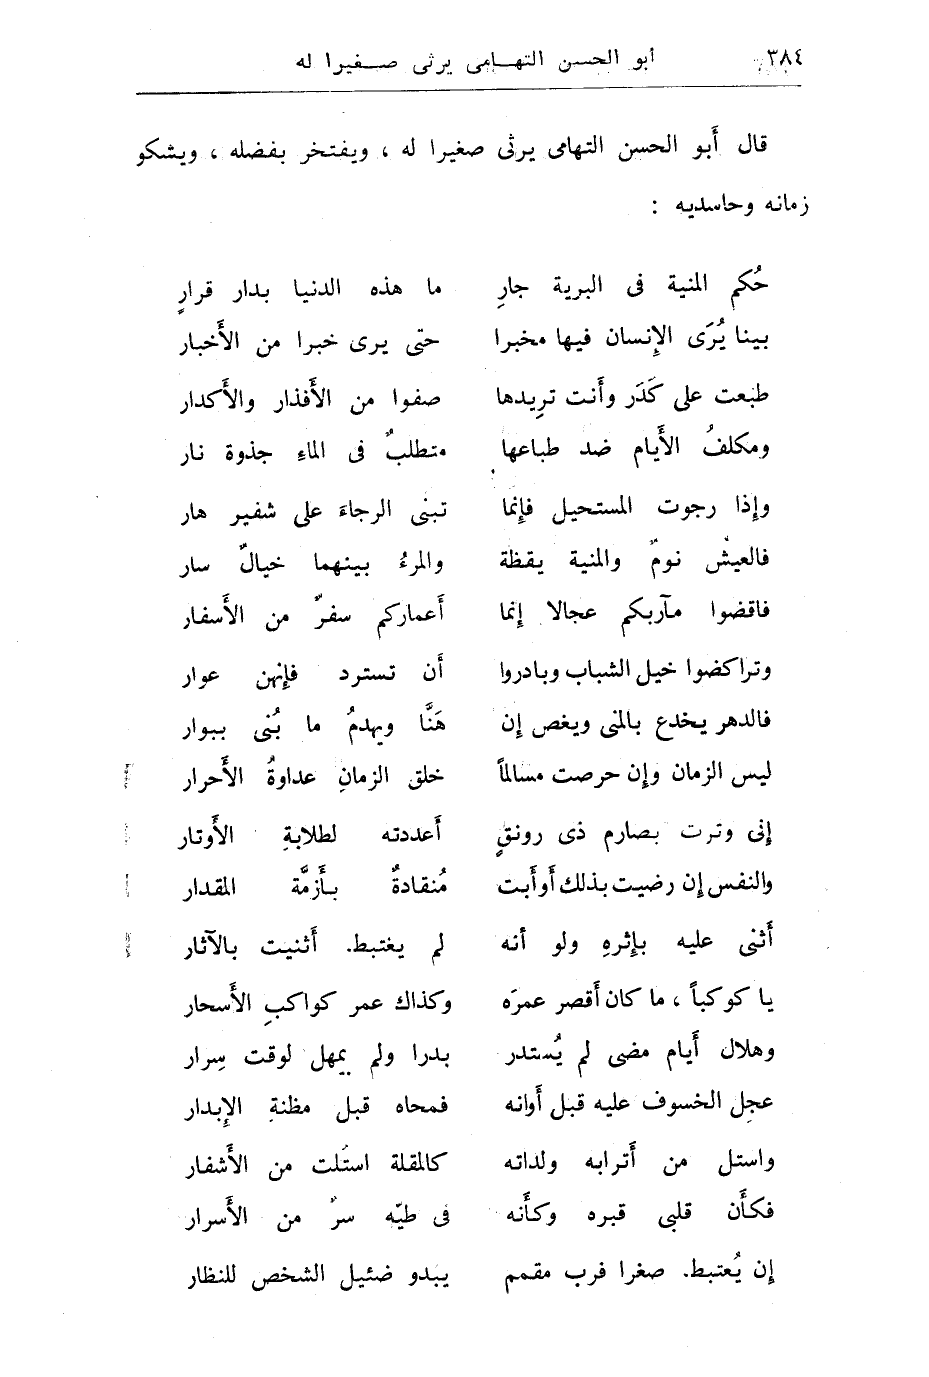 ٣٨٤ أبو الحسن التهامى يرثى صغيرا له
قال أَبو الحسن التهامى يرثى صغيرا له ، ويفتخر بفضله ، ويشكو
زمانه وحاسديه :
حُكم المنية فى البرية جارِ ما هذه الدنيا بدار قرارِ
بينا يُرَى الإِنسان فيها مخبرا حتى يرى خبرا من الأَخبار
طبعت على كَدَر وأَنت تريدها صفوا من الأَقذار والأَكدار
ومكلفُ الأَيام ضد طباعها متطلبٌ فى الماءِ جذوة نار
وإِذا رجوت المستحيل فإِنما تبنى الرجاءَ على شفير هار
فالعيش نومٌ والمنية يقظة والمرءُ بينهما خيالٌ سار
فاقضوا مآربكم عجالا إِنما أَعماركم سفرٌ من الأَسفار
وتراكضوا خيل الشباب وبادروا أَن تسترد فإِنهن عوار
فالدهر يخدع بالمنى ويغص إن هَنَّا ويهدمُ ما بُنى ببوار
ليس الزمان وإن حرصت مسالماً خلق الزمانِ عداوةُ الأَحرار
إنى وترت بصارم ذى رونقٍ أَعددته لطلابةِ الأَوتار
والنفس إن رضيت بذلك أَو أَبت مُنقادةٌ بأَزمَّة المقدار
أَثنى عليه بإِثرهِ ولو أنه لم يغتبط. أَثنيت بالآثار
يا كوكباً ، ما كان أَقصر عمرَه وكذاك عمر كواكبِ الأَسحار
وهلال أَيام مضى لم يُستدر بدرا ولم يمهل لوقت سِرار
عجِل الخسوف عليه قبل أَوانه فمحاه قبل مظنةِ الإِبدار
واستل من أَترابه ولداته كالمقلة استُلت من الأَشفار
فكأَن قلبى قبره وكأَنه فى طيّه سرٌ من الأَسرار
إن يُعتبط. صغرا فرب مقمم يبدو ضئيل الشخص للنظار